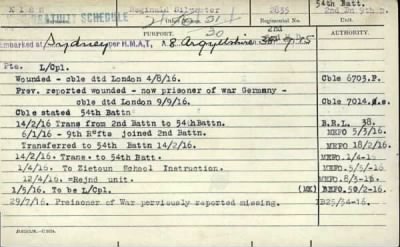 54th Batt.
Reginald Silvester 2835 2nd Bn 9th R
GRATUITY SCHEDULE
PURPORT. AUTHORITY.
Embarked at Sydney per H.M.A.T, A 8 Argyllshire
Pte. L/Cpl.
Wounded - cble dtd London 4/8/16. Cble 6703.P.
Prev. reported wounded - now prisoner of war Germany -
cble dtd London 9/9/16. Cble 7014
Cble stated 54th Battn
14/2/16 Trans from 2nd Battn to 54th Battn. B.R.L. 38.
6/1/16 - 9th Rfts joined 2nd Battn. MEFO 5/3/16.
Transferred to 54th Battn 14/2/16. MEFO 18/2/16.
14/2/16. Trans. to 54th Batt. MEFO.1/4-16
1/4/16. To Zietoun School Instruction.
12/4/16. =Rejnd unit.
1/5/16. To be L/Cpl. (MK) BEFO.50/2-16.
29/7/16. Preisoner of War perviously reported missing. IB25/54-16.